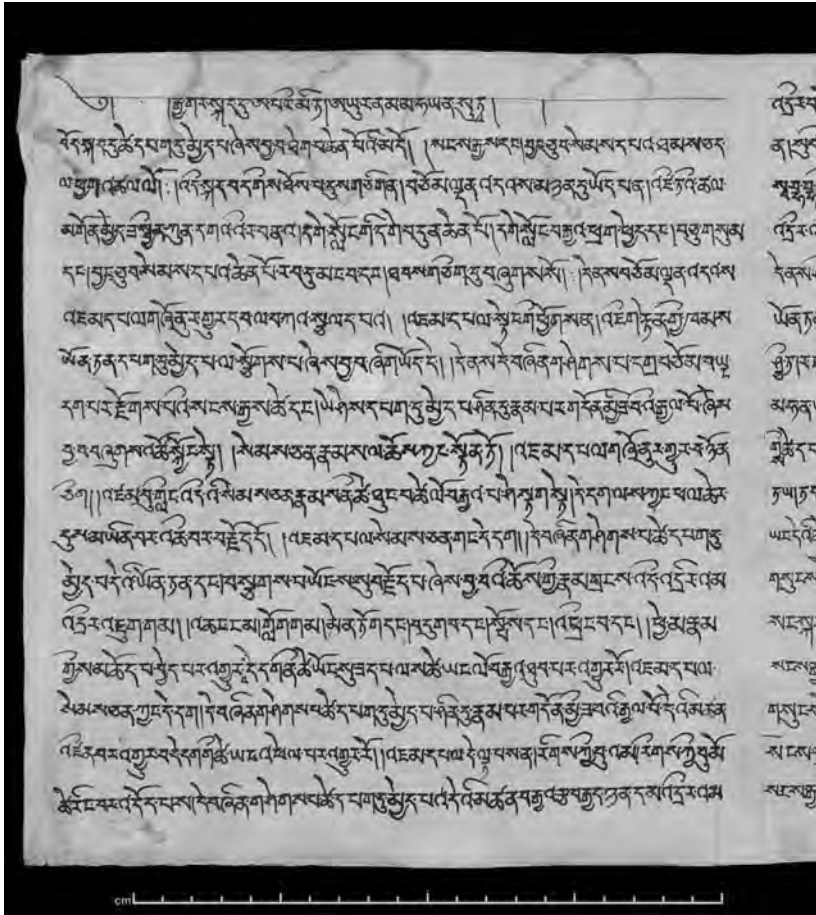 ༄། །རྒྱ་གར་སྐད་དུ་ཨ་པ་རི་མི་ཏ་། ཨ་ཡུར་ན་མ་མ་ཧ་ཡན་སུ་ཏྲ། །
བོད་སྐད་དུ་ཚེ་དཔག་དུ་མྱེད་པ་ཞེས་བྱ་བ་ཐེག་པ་ཆེན་པོའི་མདོ། །སངས་རྒྱས་དང་བྱང་ཆུབ་སེམས་དཔའ་ཐམས་ཅད་
ལ་ཕྱག་འཚལ་ལོ། །འདི་སྐད་བདག་གིས་ཐོས་པ་དུས་གཅིག་ན། བཅོམ་ལྡན་འདས་མཉན་དུ་ཡོད་པ་ན། འཛེ་ཏའི་ཚལ་
མགོན་མྱེད་ཟས་སྦྱིན་ཀུན་དགའ་འི་ར་བ་ན་། དགེ་སློང་གི་དགེ་འདུན་ཆེན་པོ། དགེ་སློང་བརྒྱ་ཕྲག་ཕྱེད་དང་། བཅུ་གསུམ་
དང་། བྱང་ཆུབ་སེམས་དཔའ་ཆེན་པོ་རབ་དུ་མང་བ་དང་། ཐབས་གཅིག་དུ་བཞུགས་སོ། །དེ་ནས་བཅོམ་ལྡན་འདས་
འཇམ་དཔལ་གཞོན་ནུར་གྱུརད་པ་ལ་བཀའ་སྩལད་པའ། །འཇམ་དཔལ་སྟེང་གི་ཕྱོགས་ན། འཇིག་རྟེན་གྱི་ཁམས་
ཡོན་ཏན་དཔག་དུ་མྱེད་པ་ལ་སྩོགས་པ་ཞེས་བྱ་བ་ཞིག་ཡོད་དེ། །དེ་ན་དེ་བཞིན་གཤེགས་པ་དགྲ་བཅོམ་བ་ཡང་
དག་པར་རྫོགས་པའི་སངས་རྒྱས་ཚེ་དང་། ཡེ་ཤེས་དཔག་དུ་མྱེད་པ་ཤིན་དུ་རྣམ་པར་གདོན་མྱི་ཟ་བའི་རྒྱལ་པོ་ཞེས་
བྱ་བ་བཞུགས་འཚོ་སྐྱོང་སྟེ། །སེམས་ཅན་རྣམས་ལ་ཆོས་ཀྱང་སྟོན་ཏོ། །འཇམ་དཔལ་གཞོན་ནུར་གྱུར་པ་ཉོན་
ཅིག། །འཛམ་བུ་གླིང་འདི་འི་སེམས་ཅན་རྣམས་ནི་ཚེ་ཐུང་བ་ཚེ་ལོ་བརྒྱ་པ་ཤ་སྟག་སྟེ། དེ་དག་ལས་ཀྱང་ཕལ་ཆེར་
དུས་མ་ཡིན་བར་འཆི་བར་བརྗོད་དོ། །འཇམ་དཔལ་སེམས་ཅན་གང་དེ་དག། །དེ་བཞིན་གཤེགས་པ་ཚེ་དཔག་དུ་
མྱེད་པ་དེའི་ཡོན་ཏན་དང་། བསྔགས་པ་ཡོངས་སུ་བརྗོད་པ་ཞེས་བྱ་བའི་ཆོས་ཀྱི་རྣམ་གྲངས་འདི་འདྲིའམ་
འདྲིར་འཇུག་གམ། །འཆང་ངམ། ཀློག་གམ། མེན་ཏོག་དང་། བདུག་པ་དང་། སྤོས་དང་། འཕྲེང་བ་དང་། །ཕྱེ་མ་རྣམ་
གྱིས་མཆོད་པ་བྱེད་པར་འགྱུར་དེ་དག་ནི་ཚེ་ཡོངསུ་ཟད་པ་ལས་ཚེ་ཡང་ལོ་བརྒྱ་ཐུབ་པར་འགྱུར་རོ། འཇམ་དཔལ་
སེམས་ཅན་ཀྱང་དེ་དག། དེ་བཞིན་གཤེགས་པ་ཚེ་དཔག་དུ་མྱེད་པ་ཤིན་དུ་རྣམ་པར་གདོན་མྱི་ཟ་བའི་རྒྱལ་པོ་དེའི་མཚན་
འཛིན་པར་འགྱུར་བ་དེ་དག་གི་ཚེ་ཡང་འཕེལ་པར་འགྱུར་རོ། །འཇམ་དཔལ་དེ་ལྟ་བས་ན། རིགས་ཀྱི་བུ་འམ། རིགས་ཀྱི་བུ་མོ་
ཚེ་རིང་བར་འདོད་པས། དེ་བཞིན་གཤེགས་པ་ཚེ་དཔག་དུ་མྱེད་པ་དེའི་མཚན་བརྒྱ་རྩ་བརྒྱད་ཉན་དམ་འདྲི་རའམ